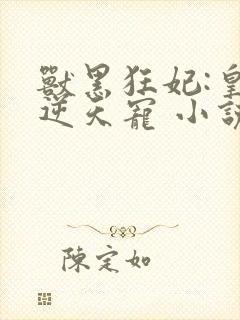 獸黑狂妃:皇
逆天寵 小說
陳定如